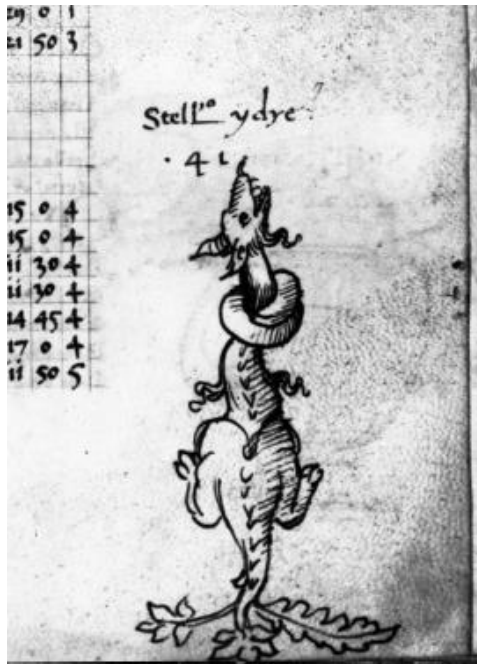 29 0 3
21 50 3
Stell'o ydre
· 4 i
15 0 4
15 0 4
ii 30 4
ii 30 4
14 45 4
17 0 4
ii 50 5